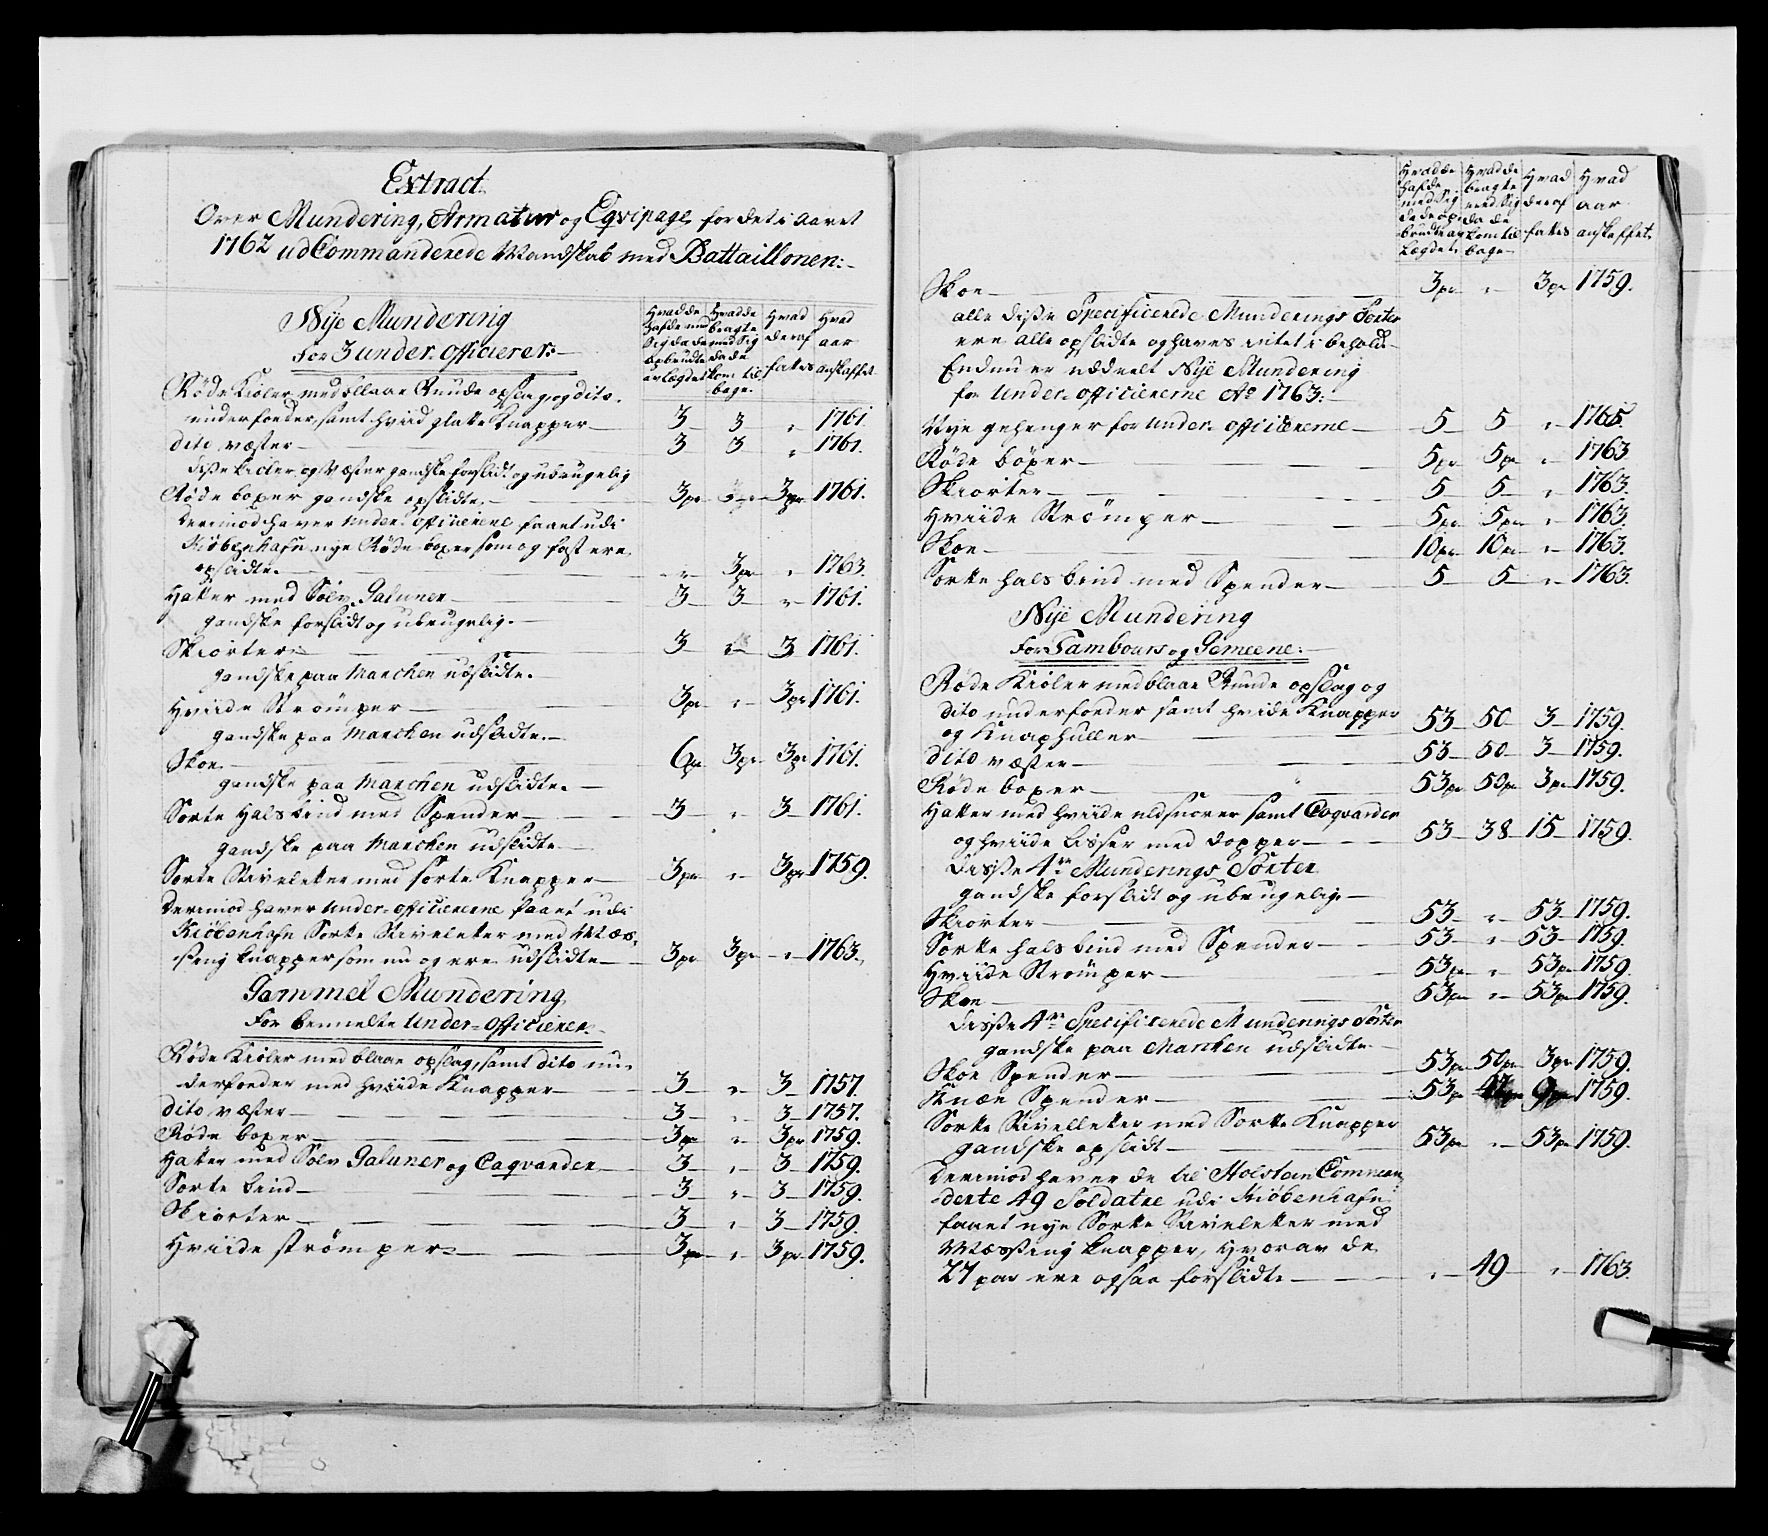 Extract
Over Mundering, Armatur og Eqvipage, for det i Aaret
1762 ud Commanderede Mandskab med Battaillonen:
Hvad de hafde med Sig da de opbrudte av Lægdet
Hvad de bragte med Sig da de kom tilbage
Hvad deraf fattes
Hvad aar anskaffet
Nÿe Mundering
For 3 under officierer:
Røde Kioler med blaae Runde opslag, og dito
underfoeder, samt hvid glatte Knapper 3 3 " 1761.
dito væster 3 3 " 1761.
disse Kioler og Væster gandske forslidt og ubrugelig
Røde boxer gandske opslidte 3pr 3pr 1761.
Derimod haver under officiererne faaet udi
Kiøbenhafn nye Røde boxer som og fast ere
opslidte " 3pr " 1763.
Hatter med Sølv Galuner 3 3 " 1761.
gandske forslidt og ubrugelig.
Skiorter 3 3 1761.
gandske paa Marchen udslidte.
Hviide Strømper 3pr " 3pr 1761.
gandske paa Marchen udslidte.
Skoe 6pr 3pr 3pr 1761.
gandske paa Marchen udslidte.
Sorte Halsbind med Spender 3 " 3 1761.
gandske paa Marchen udslidte
Sorte Stiveletter med sorte Knapper 3pr " 3pr 1759.
Derimod haver under-officiererne faaet udi
Kiøbenhafn Sorte Stiveletter med Mæs-
sing knapper som nu og ere udslidte 3pr 3pr " 1763.
Gammel Mundering
For bemelte Under-officierer
Røde Kioler med blaae opslag, samt dito un-
derfoeder med hviide Knapper 3 " 3 1757.
dito væster 3 " 3 1757.
Røde boxer 3pr " 3pr 1759.
Hatter med Sølv Galuner og Caqvarder 3 " 3 1759.
Sorte bind 3 " 3 1759.
Skiorter 3 " 3 1759.
Hviide strømper 3pr " 3pr 1759.
Hvad de hafde med Sig da de opbrudte av Lægdet
Hvad de bragte med Sig da de kom tilbage
Hvad deraf fattes
Hvad aar anskaffet.
Skoe 3pr " 3pr 1759.
alle disse Specificerede Munderings Sorter
ere alle opslidte og haves intet i behold.
Endnu er uddeelt Nÿe Mundering
for under-officiererne Ao 1763:
Nye gehenger for under-officiererne 5 5 " 1765.
Røde böxer 5pr 5pr " 1763
Skiorter 5 5 " 1763.
Hviide Strömper 5pr 5pr " 1763.
Skoe 10pr 10pr " 1763.
Sorte halsbind med Spender 5 5 " 1763.
Nÿe Mundering
For Tambours og Gemeene:
Røde Kioler med blaae Runde opslag og
dito underfoeder samt hvide Knapper
og Knaphuller 53 50 3 1759.
dito væster 53 50 3 1759.
Røde boxer 53pr 50pr 3pr 1759.
Hatter med hviide uldsnorer samt Caqvarder
og hviide Lisser med dopper 53 38 15 1759.
disse 4re Munderings Sorter
gandske forslidt og ubrugelig
Skiorter 53 " 53 1759.
Sorte halsbind med Spender 53 " 53 1759.
Hviide Strømper 53pr " 53pr 1759.
Skoe 53pr " 53pr 1759.
disse 4re Specificerede Munderings Sorter
gandske paa Marchen udslidte
Skoe Spender 53pr 50pr 3pr 1759.
Knæe Spender 53pr 9pr 1759.
Sorte Stivelletter med Sorte Knapper
gandske opslidt 53pr " 53pr 1759.
Derimod haver de til Holstein Comman-
derte 49 Soldater udi Kiøbenhafn
faaet nye Sorte Stiveletter med
Mæssing knapper, hvorav de
27 par ere ogsaa forslidte " 49 " 1763.